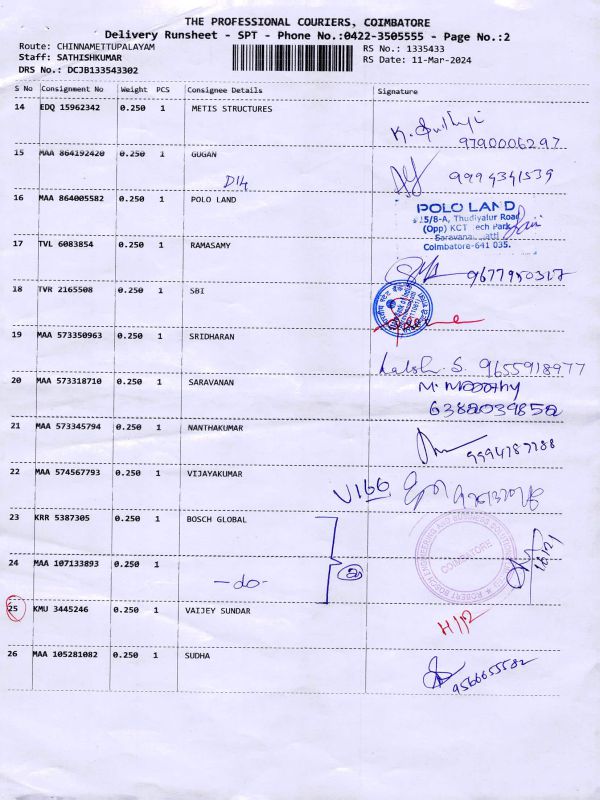 THE PROFESSIONAL COURIERS, COIMBATORE
Delivery Runsheet - SPT - Phone No.:0422-3505555 - Page No.:2
Route: CHINNAMETTUPALAYAM RS No.: 1335433
Staff: SATHISHKUMAR RS Date: 11-Mar-2024
DRS No.: DCJB133543302
S No Consignment No Weight PCS Consignee Details Signature
14 EDQ 15962342 0.250 1 METIS STRUCTURES
9790006297
15 MAA 864192420 0.250 1 GUGAN
D14 9994341539
16 MAA 864005582 0.250 1 POLO LAND
POLO LAND
15/8-A, Thudiyalur Road
(Opp) KCT Tech Park
Coimbatore-641 035.
17 TVL 6083854 0.250 1 RAMASAMY
18 TVR 2165508 0.250 1 SBI
19 MAA 573350963 0.250 1 SRIDHARAN
S. 9655918977
20 MAA 573318710 0.250 1 SARAVANAN
M. Moorthy
6382039852
21 MAA 573345794 0.250 1 NANTHAKUMAR
22 MAA 574567793 0.250 1 VIJAYAKUMAR
23 KRR 5387305 0.250 1 BOSCH GLOBAL
ROBERT BOSCH ENGINEERING AND BUSINESS SOLUTIONS
COIMBATORE
24 MAA 107133893 0.250 1
-do-
25 KMU 3445246 0.250 1 VAIJEY SUNDAR
26 MAA 105281082 0.250 1 SUDHA
9566655582